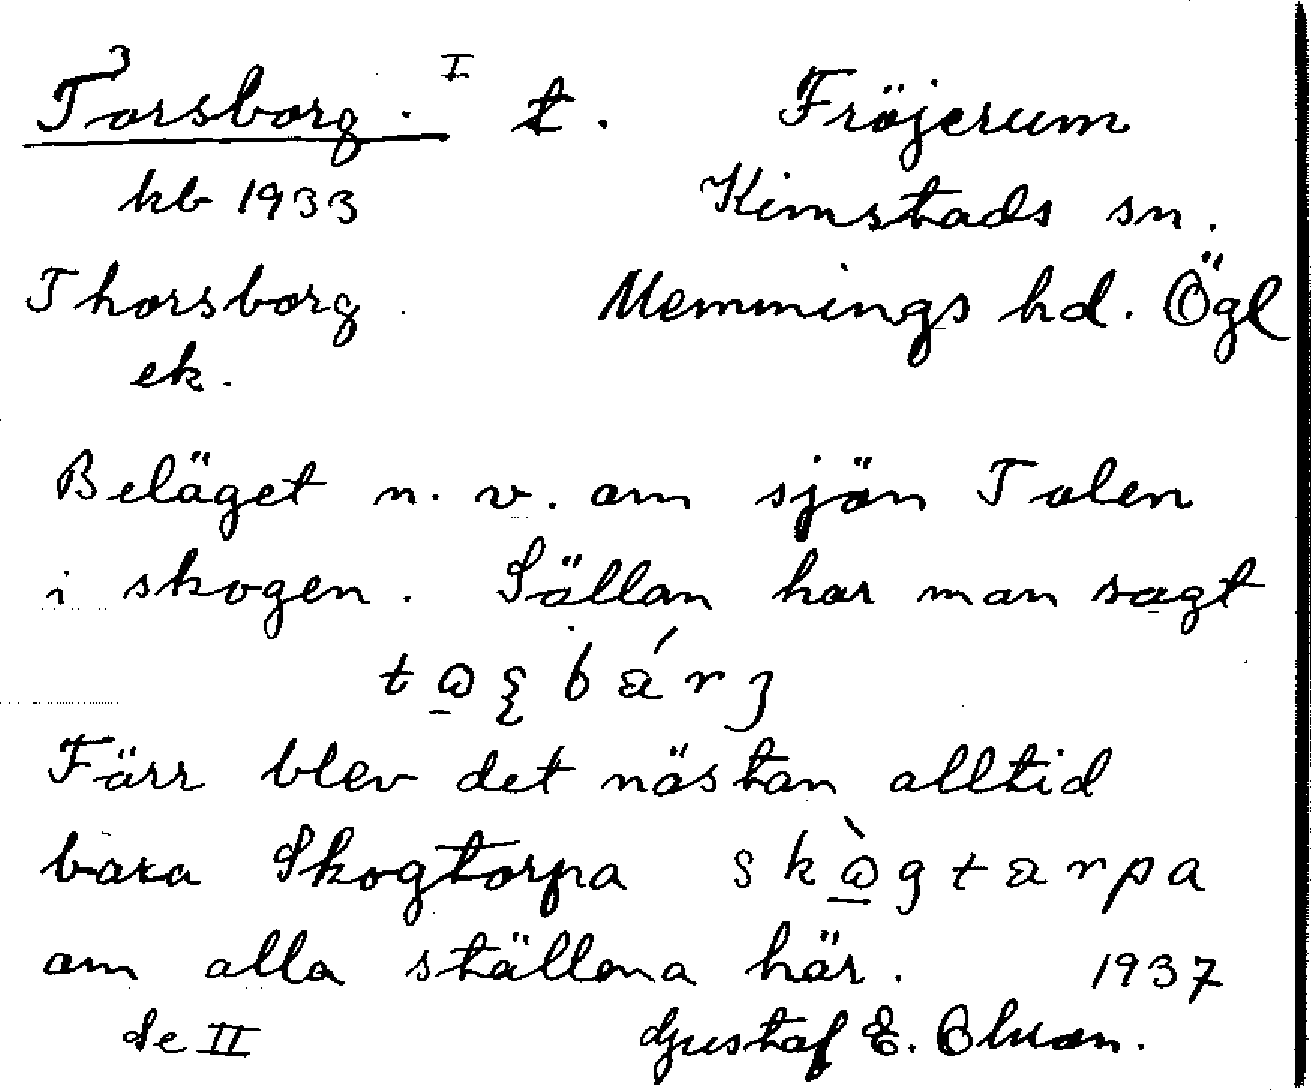 3
Torsborg. I t. Fröjerum
kb 1933 Kimstads sn.
Thorsborg Memmings hd. Ögl
ek.
Beläget n. v. om sjön Tolen
i skogen. Sällan har man sagt
Förr blev det nästan alltid
bara Skogtorpa
om alla ställena här. 1937
Se II Gustaf E.